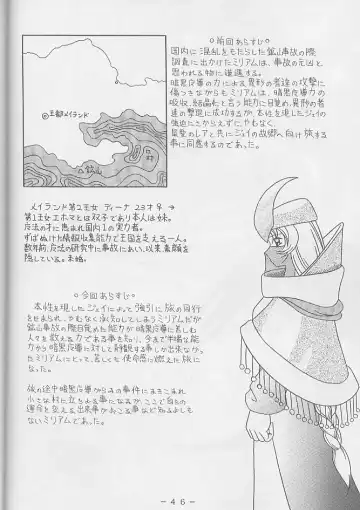 ○前回あらすじ○
国内に混乱をもたらした鉱山事故の際
調査に出かけたミリアムは、事故の元凶と
思われる物に遭遇する。
暗黒反導の力による異形の者達の攻撃に
傷つきながらもミリアムは、暗黒反導力の
吸収、結晶化と言う能力に目覚め、異形の者
達の撃退に成功するが、本性を現したジェイの
強迫にさからえずに、やむなく、
皇聖のレアと共にジェイの故郷へ向け旅する
事に同意するのであった。
◎王都メイランド
鉱山
メイランド第2王女 ディーナ 23才
第1王女エホマとは双子であり本人は妹。
反法の才に恵まれ国内1の実力者。
ずばぬけた情報収集能力で王国を支える一人。
数年前、反法の研究中事故にあい、以来、素顔を
隠している。未婚。
○今回あらすじ○
本性を現したジェイによって強引に旅の同行
をせまられ、やむなく承知してしまうミリアムだが
鉱山事故の際目覚めた能力が暗黒反導に苦しむ
人々を救える力である事を知り、今まで半端な能
力から暗黒反導に対して静観する事しか出来なか
ったミリアムにとって、苦しくも使命感に燃えた旅に
なった。
旅の途中暗黒反導がらみの事件にまきこまれ
小さな村に立ちよる事になるが、ここで自らの
運命を変える出来事がおころ事など知るよしも
ないミリアムであった。
－46－